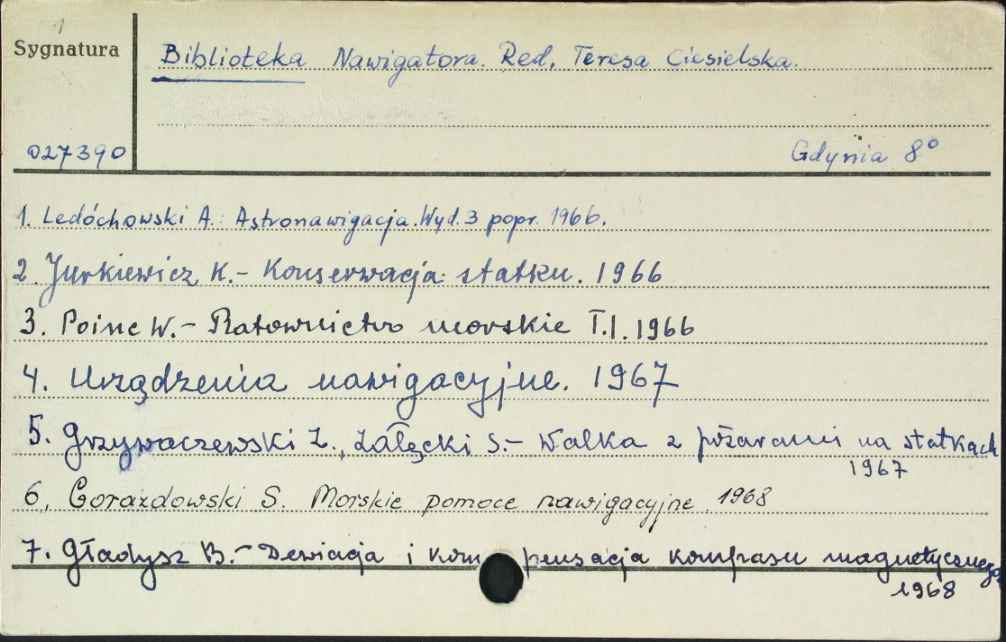 Sygnatura
Biblioteka Nawigatora. Red. Teresa Ciesielska.
027390
Gdynia 8°
1. Ledóchowski A.: Astronawigacja. Wyd. 3 popr. 1966.
2. Jurkiewicz K. - Konserwacja statku. 1966
3. Poinc W. - Ratownictwo morskie T.1. 1966
4. Urządzenia nawigacyjne. 1967
5. Grzywaczewski Z., Załęcki S. - Walka z pożarami na statkach
1967
6. Gorazdowski S. Morskie pomoce nawigacyjne. 1968
7. Gładysz B. - Dewiacja i kompensacja kompasu magnetycznego
1968